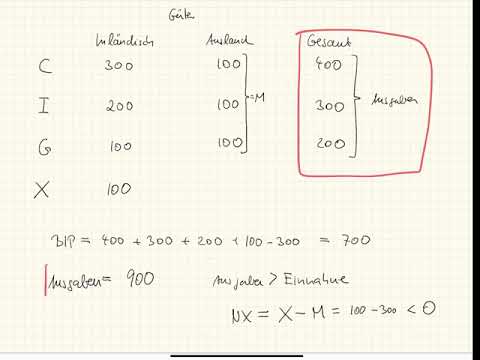 Güter
Inländisch Ausland Gesamt
C 300 100 400
I 200 100 =M 300 Ausgaben
G 100 100 200
X 100
BIP = 400 + 300 + 200 + 100 - 300 = 700
Ausgaben = 900 Ausgaben > Einnahme
NX = X - M = 100 - 300 < 0